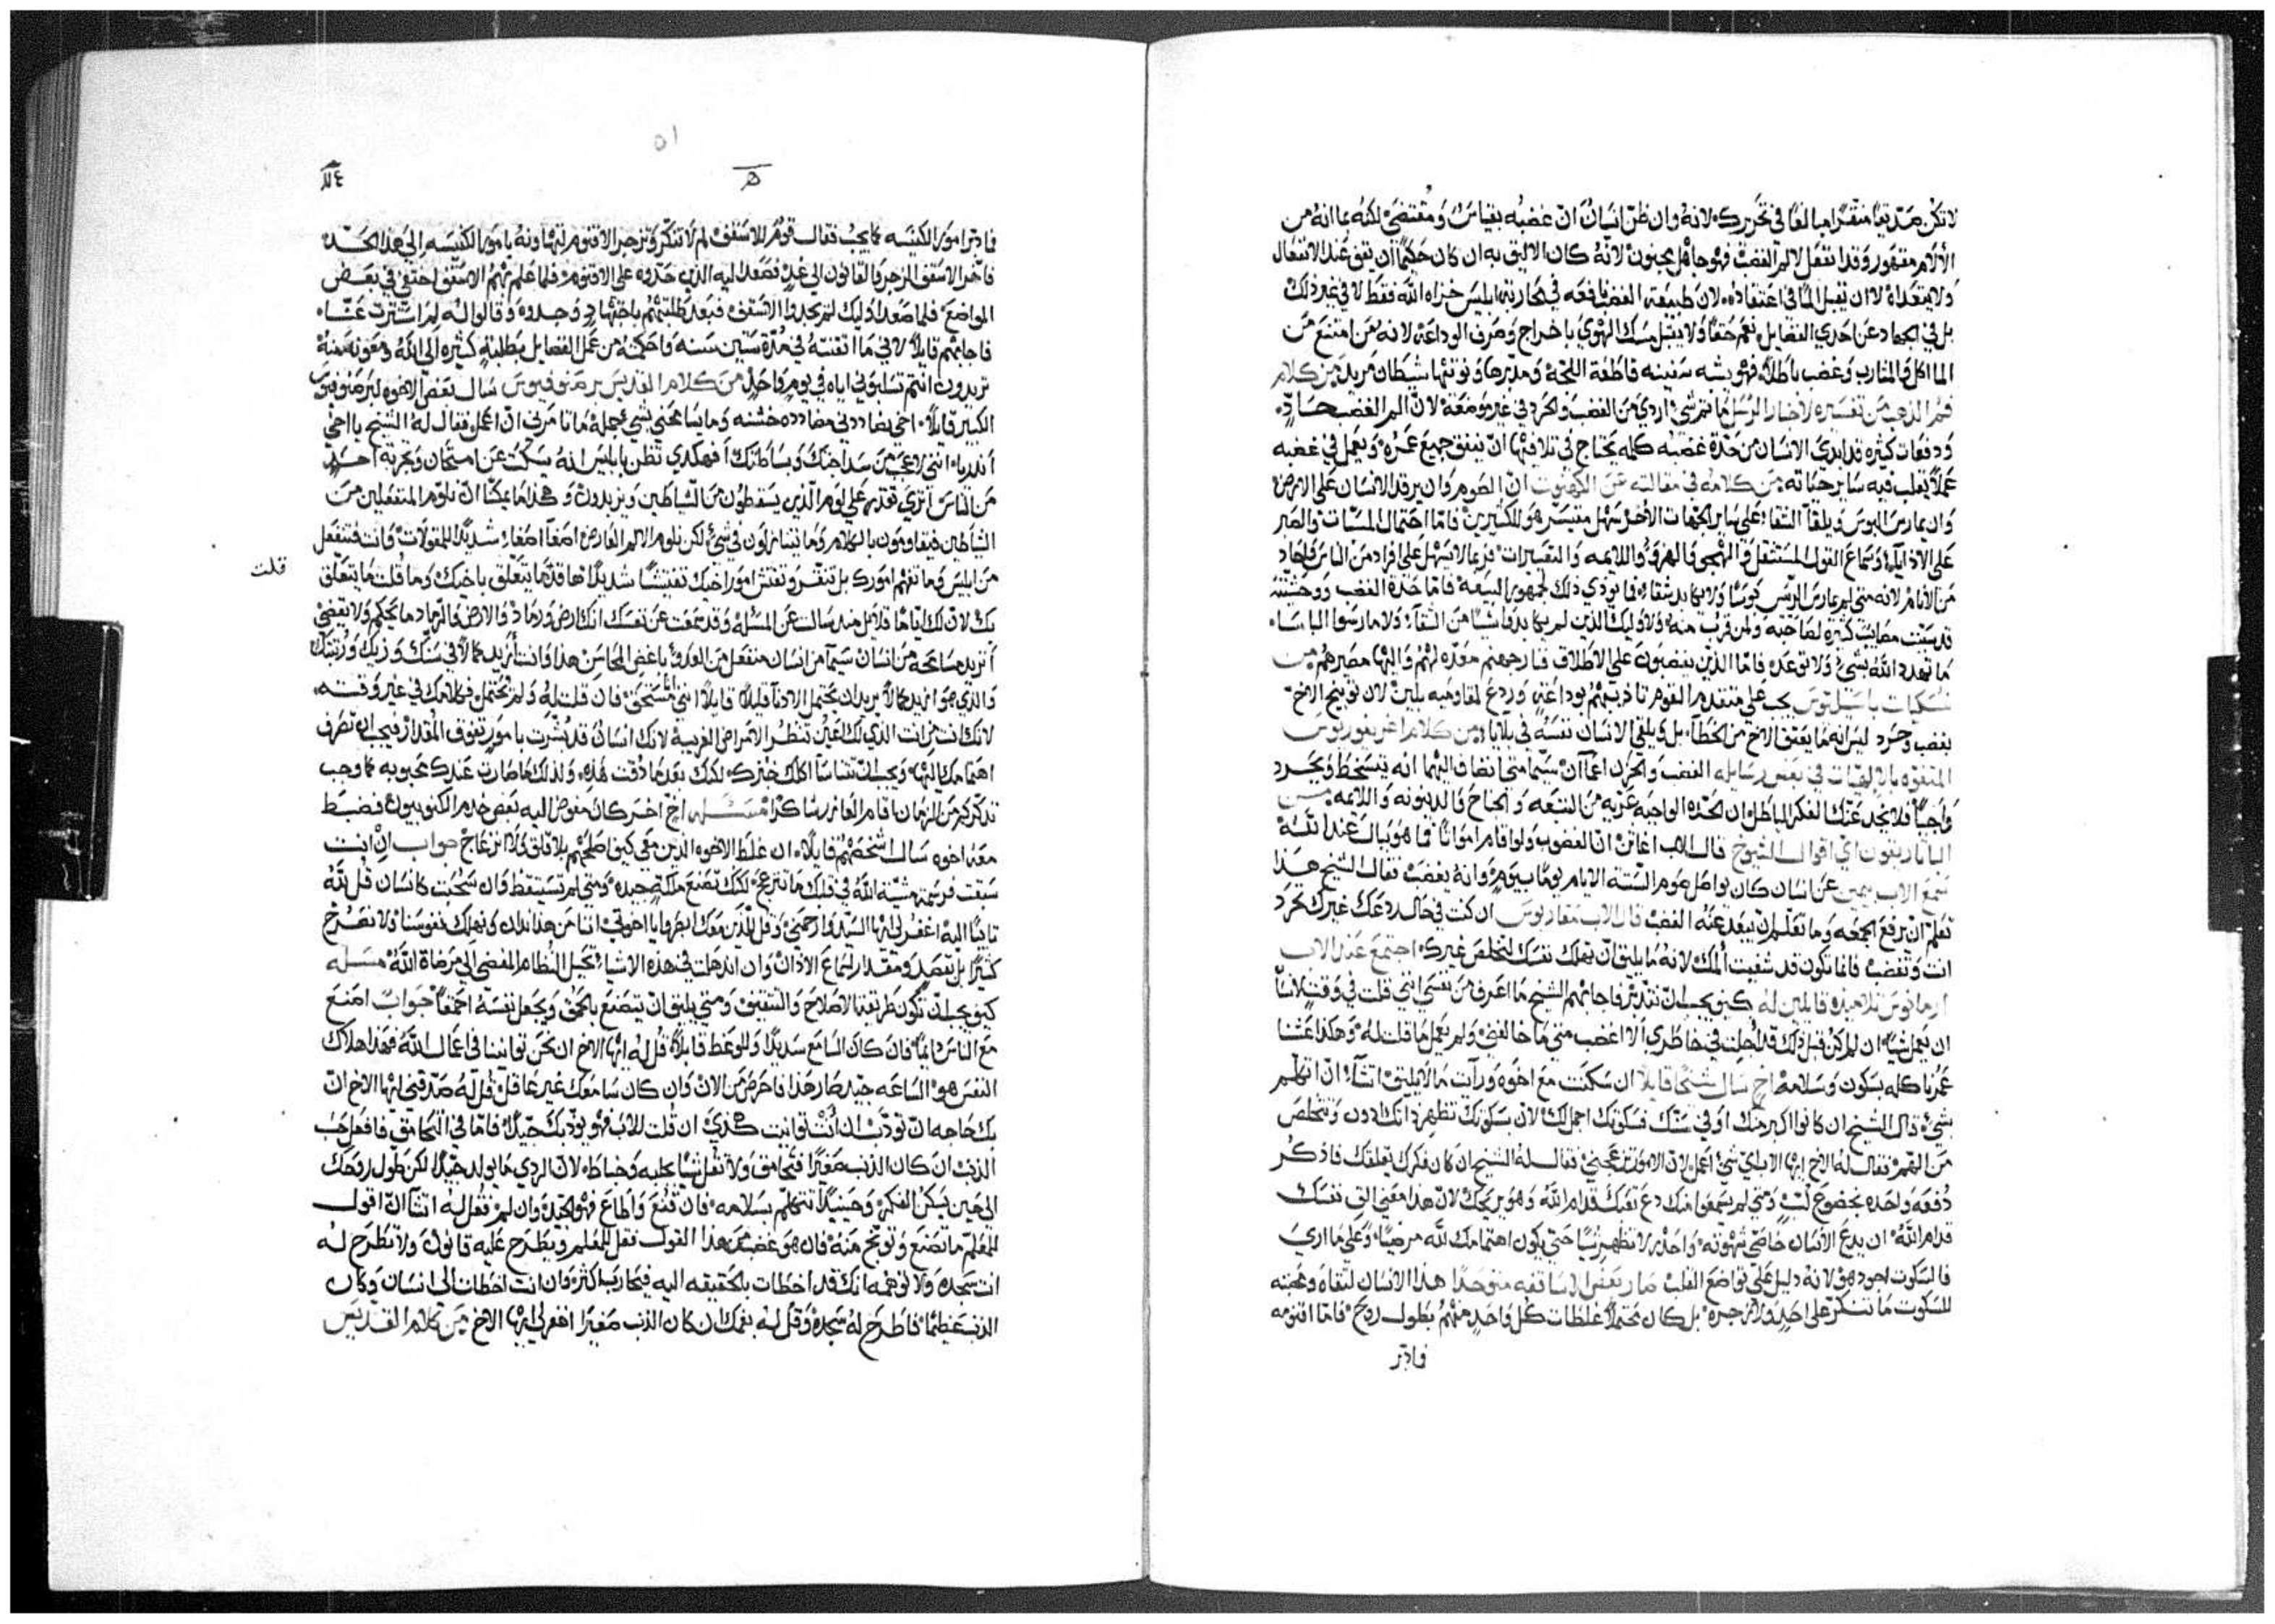 لا تكن صديقا منقرا مبالغا في تحريرك لانه وان ظن انسان ان غضبه بقياس ومقتضى لكنه بما انه من
الالام مقهور وقد انتقل لالم الغضب فهو جاهل مجنون لانه كان الاليق به ان كان حكيما ان يتقي عند الانفعال
ولا يتعداه لا ان يقبل الما في اعتقاده لان طبيعة الغضب نافعه في محاربة ابليس خزاه الله فقط لا في غير ذلك
بل في الجهاد عن احدي الفضايل نعم حقا ولا يقبل مسك الهوي باخراج وصرف الوداعة لانه من امتنع من
الماكل والمشارب وغضب باطلا فهو يشبه سفينه قاطعة اللجة ومدبرها ونوتيها شيطان مريد من كلام
فم الذهب من تفسيره لاخبار الرسل ما ثم شي اردي من الغضب والحرد في غير موضعه لان الم الغضب حاد
ودفعات كثيره قد ابدي الانسان من حدة غضبه كلمه يحتاج في تلافيها ان ينفق جميع عمره ويعمل في غضبه
عملا يغلب فيه ساير حياته من كلامه في مقالته عن الكهنوت ان الصوم وان يرقد الانسان علي الارض
وان يمارس البوس ويلقا الشقا علي ساير الجهات الاخر سهل متيسر هو للكثيرين فاما احتمال المسبات والصبر
علي الاذايا وسماع القول المستثقل والهجي والهزو واللايمه والتعييرات فربما لا يسهل علي افراد من الناس واحاد
من الانام لانه متي لم يمارس الرييس بوسا ولا يكابد شقاء فما يوذي ذلك لجمهور البيعة فاما حدة الغضب ووحشته
قد سببت مصائب كثيره لصاحبه ولمن قرب منه ولا وليك الذين لم يكابدوا شيا من الشقاء ولا مارسوا الباساء
ما تهدد الله بشي ولا توعده فاما الذين يغضبون علي الاطلاق فارجعهم معده لهم واليها مصيرهم من
نسكيات باسيليوس يجب علي متقدم القوم تاديبهم بوداعة وردع لمقاوميه بلين لان توبيخ الاخ
بغضب وحرد ليس انه ما يعتق الاخ من الخطا بل ويلقي الانسان نفسه في بلايا من كلام اغريغوريوس
المتفوه بالالهيات في بعض رسايله الغضب والحزن اعما ان سيما متي انضاف اليهما انه يتسخط ويحرد
واجبا فلا يخدعنك الفكر الباطل ان الحده الواجبه غريبه من التبعه والجناح والدينونه واللايمه من
الباتاريقون اي اقوال الشيوخ قال الاب اغاثن ان الغضوب ولو اقام امواتا فما هو بمقبول عند الله
سمع الاب بيمين عن انسان كان يواصل صوم الستة الايام يوما بيوم وانه يغضب فقال الشيخ هذا
تعلم ان يرفع الجمعه وما تعلم ان يبعد عنه الغضب قال الاب مقاريوس ان كنت في حال ردعك غيرك تحرد
انت وتغضب فانما تكون قد شفيت المك لانه ما يليق ان تهلك نفسك لتخلص غيرك اجتمع عند الاب
ارمانوس تلاميذه قايلين له كيف يجب ان نتدبر فاجابهم الشيخ ما اعرف من نفسي انني قلت في وقت لانسان
ان يعمل شيا ان لم اكن قبل ذلك قد احليت في خاطري الا اغضب متي ما خالفني ولم يعمل ما قلت له وهكذا عشنا
عمرنا كله بسكون وسلامة اخ سال شيخا قايلا ان سكنت مع اخوه ورايت ما لا يليق اتشاء ان اتكلم
بشي قال الشيخ ان كانوا اكبر منك او في سنك فسكوتك اجمل لك لان بسكوتك تظهر ذاتك ادون وتتخلص
من الهم فقال له الاخ ايها الاب اي شي اعمل لان الامور تزعجني فقال له الشيخ ان كان فكرك يقلقك فاذكر
دفعه واحده بخضوع لب ومتي لم يسمعوا منك دع تعبك قدام الله وهو يريحك لان هذا معني القي نفسك
قدام الله ان يدع الانسان خاصي شهوته واحذر لا تظهر شيا حتي يكون اهتمامك لله مرضيا وعلي ما اري
فالسكوت اجود هو لانه دليل علي تواضع القلب صار بعض الاساقفه متوحدا هذا الانسان لتقاه ومحبته
للسكوت ما تنكر علي احد ولا زجره بل كان محتملا غلطات كل واحد منهم بطول روح فاما اقنومه
فادبر
٥١
فادبر امور الكنيسه كما يجب فقال قوم للاسقف لم لا تنكر وتزجر الاقنوم لتهاونه بامور الكنيسه الي هذا الحد
فاخر الاسقف الزجر والقانون الي غد فصعد اليه الذين حردوه علي الاقنوم فلما علم بهم الاسقف اختفي في بعض
المواضع فلما صعد اوليك لم يجدوا الاسقف فبعد طلبتهم باجتهاد وجدوه وقالوا له لم استترت عنا
فاجابهم قايلا لان ما اتقنته في مدة ستين سنه واحكمته من عمل الفضايل بطلبه كثيره الي الله ومعونه منه
تريدون انتم تسلبوني اياه في يوم واحد من كلام القديس برصنوفيوس سال بعض الاخوه لبرصنوفيوس
الكبير قايلا اخي يضاددني مضادده خشنه وما يسامحني بشي بجملة ما تامرني ان اعمل فقال له الشيخ يا اخي
اندرياء انني لاعجب من سذاجتك وبساطتك افهكذي تظن بابليس انه يسكت عن امتحان وتجربة احد
من الناس اتري تقدر علي لوم الذين يسقطون من الشياطين ويزبدون وهذا ما يمكنا ان نلوم المنفعلين من
الشياطين فيقاومون بالكلام وما يتنازلون في شي لكن نلوم الالم العارض اصغا اصغاء شديدا للمقولات وانت فتنفعل
من ابليس وما تفهم امورك بل تنقر وتفتش امور اخيك تفتيشا شديدا ها قد ما يتعلق باخيك وما قلت ما يتعلق
قلت
بك لان لك اياما قلايل منذ سالت عن المسله وقد سمعت عن نفسك انك ارض ورماد والارض والرماد ما يحكم ولا يقضي
اتريد مسامحه من انسان سيما من انسان منفعل من العدو باغض المحاسن هذا وانت ازيد كمالا في سنك وزيك ورتبتك
والذي هو ازيد كمالا يريد ان يحتمل الادنا قليلا قايلا انني استحق فان قلت له ولم يحتمل فكلامك في غير وقته
لانك انت من انت الذي لك اعين تنظر الامراض الغريبة لانك انسان قد بشرت بامور تفوق المقدار فيجب ان تصرف
اهتمامك اليها ويجب ان تتناسا اكلك خبزك لكنك بعد ما ذقت لهذه ولذلك ما صارت عندك محبوبه كما وجب
تذكر كم من الزمان اقام العازر ساكرا مسئله اخ اخر كان مفوض اليه بعض خدم الكنوبيون فضبط
معه اخوه سال الشخصهم قايلا ان غلط الاخوه الذين معي كيف اصلحهم بلا قلق ولا انزعاج جواب ان انت
سبقت فرسمت مشية الله في قلبك ما تنزعج لكنك تصنع ملكة جيده ومتي لم تستيقظ وان سحبت كانسان قل لله
تايبا اليه اغفر لي ايها السيد وارحمني وقل للذين معك انظروا يا اخوتي اننا من هذا ندان ونهلك نفوسنا ولا تصرخ
كثيرا بل بقصد ومقدار اسماع الاذان وان اندهلت في هذه الاشياء تخيل النظام المفضي الي مرضاة الله مسله
كيف يجب ان تكون طريقة الاصلاح والتثقيف ومتي يليق ان يتصنع بالحمق ويجعل نفسه احمقا جواب امنع
مع الناس دايما فان كان السامع سديدا وللوعظ قابلا قل له ايها الاخ ان نحن توانينا في اعمال الله فهذا هلاك
النفس هو الساعه جيد صار هذا فاحرص من الان وان كان سامعك غير عاقل قل له صدقني ايها الاخ ان
بك حاجه ان تودب ان انت توانيت هكدي ان قلت للاب فهو يودبك جيدا فاما في التحامق فافعل حسب
الذنب ان كان الذنب صغيرا فتحامق ولا تقل شيا بحلبه وخباط لان الردي ما يولد جيدا لكن طول روحك
الي حين يسكن الفكر وحينيذ تتكلم بسلامه فان قنع واطاع فهو الجيد وان لم فقل له اتشاء ان اقول
للمعلم ما تصنع وتوبخ منه فان هو غضب من هذا القول فقل للمعلم ويطرح عليه قانون ولا تطرح له
انت سجده ولا توهمه انك قد اخطات بالحقيقه اليه فيحاربك اكثر فان انت اخطات الي انسان وكان
الذنب عظيما فاطرح له سجده وقل له بفمك ان كان الذنب صغيرا اغفر لي ايها الاخ من كلام القديس